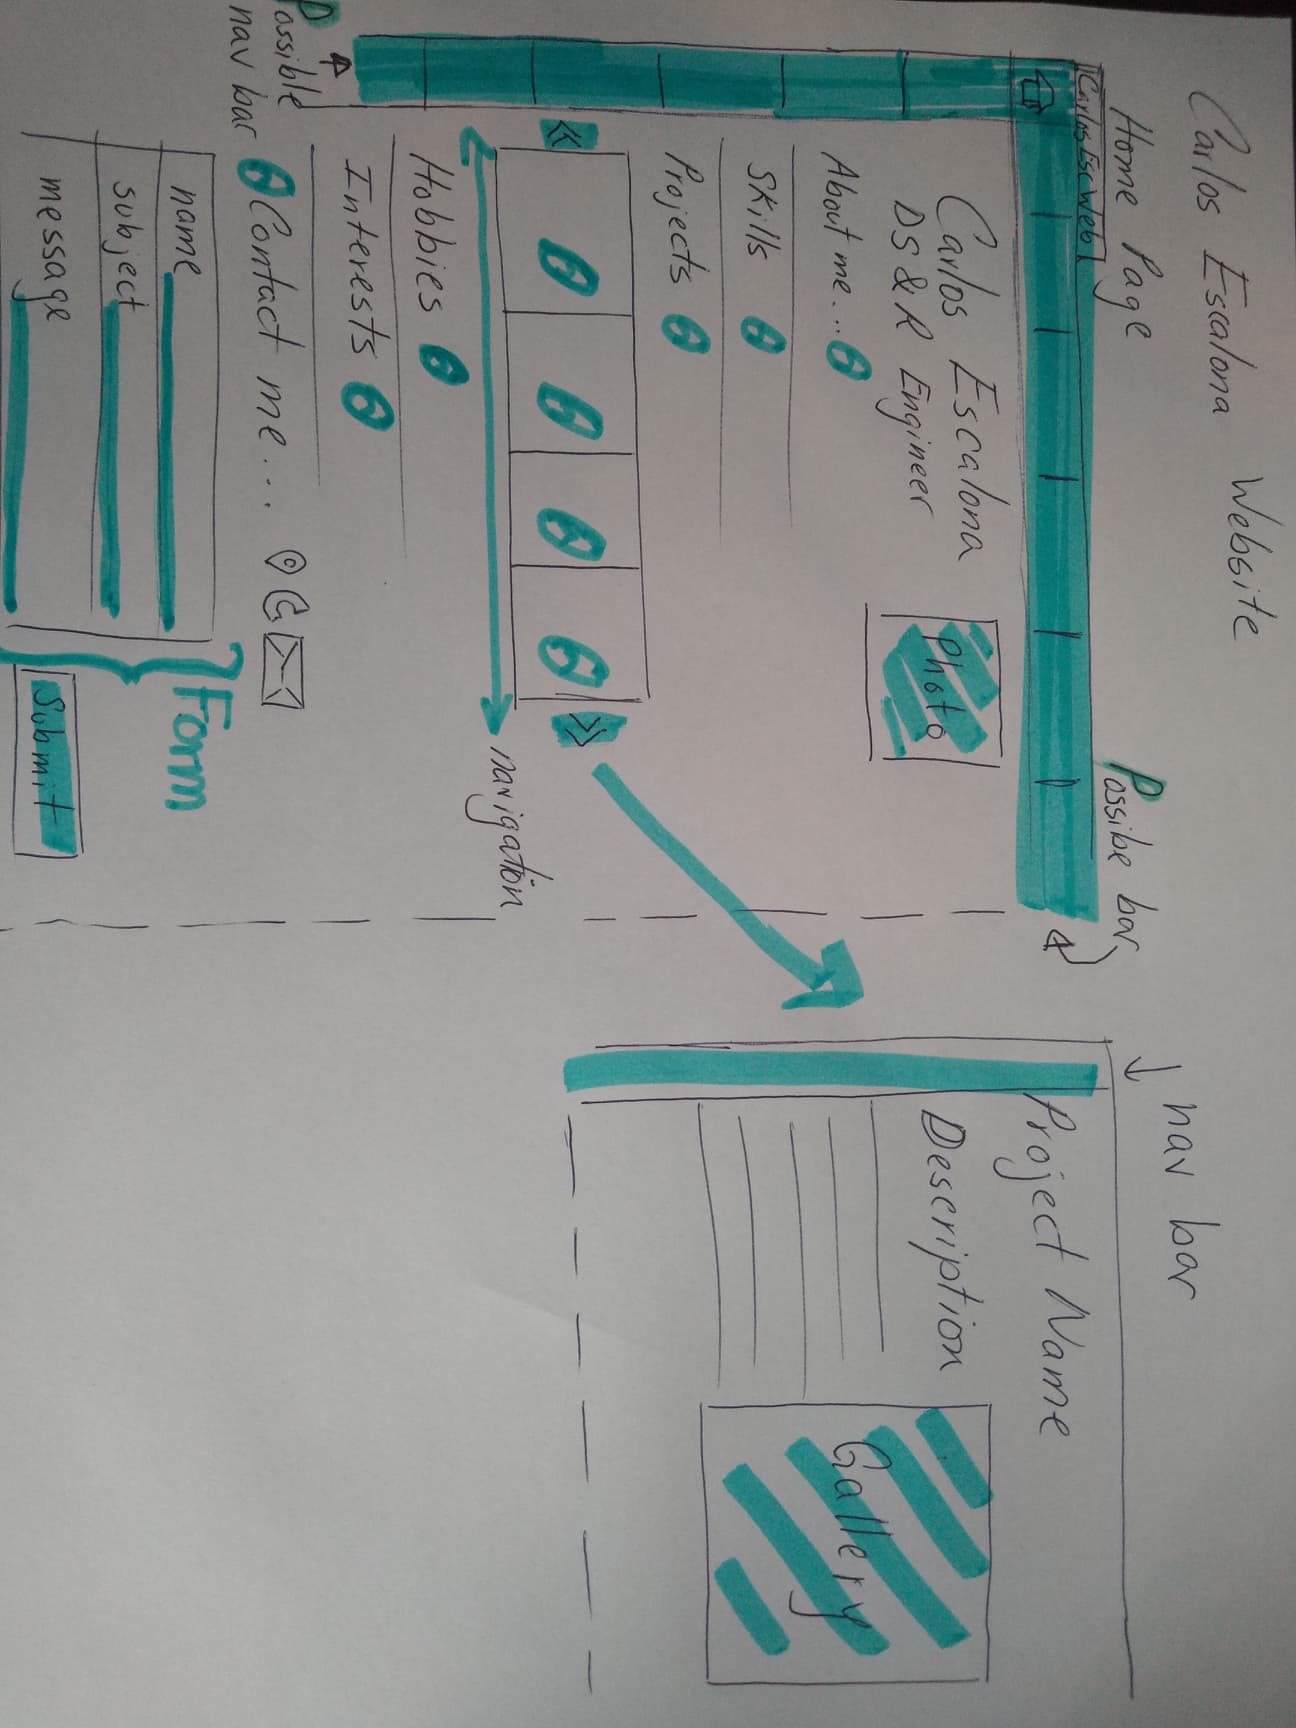 Carlos Escalona Website
Home Page
Possibe bar
Carlos Esc Web
Carlos Escalona
DS & R Engineer
Photo
About me...
Skills
Projects
«
»
navigation
Hobbies
Interests
Possible
nav bar
Contact me...
name
subject
message
Form
Submit
nav bar
Project Name
Description
Gallery